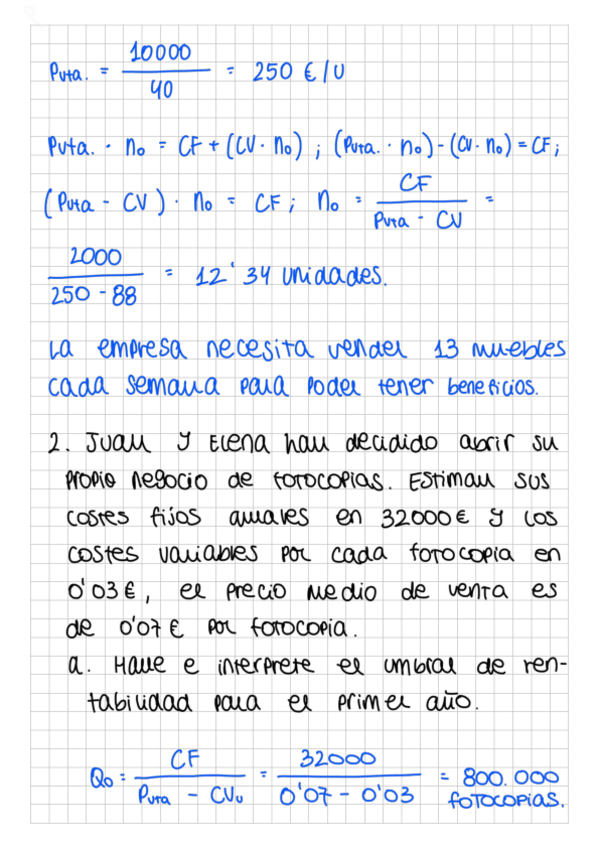 Pvta. = 10000 / 40 = 250 €/U
Pvta. · no = CF + (CV · no) ; (Pvta. · no) - (CV · no) = CF ;
(Pvta - CV) · no = CF ; no = CF / Pvta - CV =
2000 / 250 - 88 = 12'34 unidades.
La empresa necesita vender 13 muebles
cada semana para poder tener beneficios.
2. Juan y Elena han decidido abrir su
propio negocio de fotocopias. Estiman sus
costes fijos anuales en 32000€ y los
costes variables por cada fotocopia en
0'03€, el precio medio de venta es
de 0'07€ por fotocopia.
a. Halle e interprete el umbral de ren-
tabilidad para el primer año.
Qo = CF / Pvta - CVu = 32000 / 0'07 - 0'03 = 800.000
fotocopias.